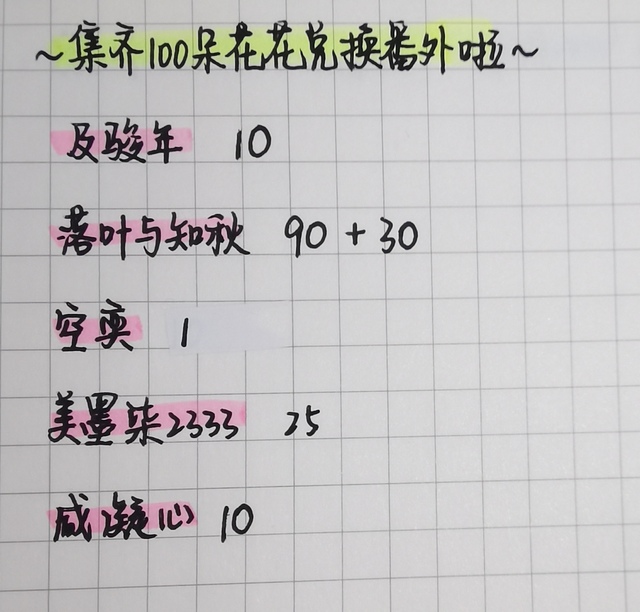 ~集齐100朵花花兑换番外啦~
及骏年 10
落叶与知秋 90+30
空奕 1
美墨柒2333 25
咸凝心 10